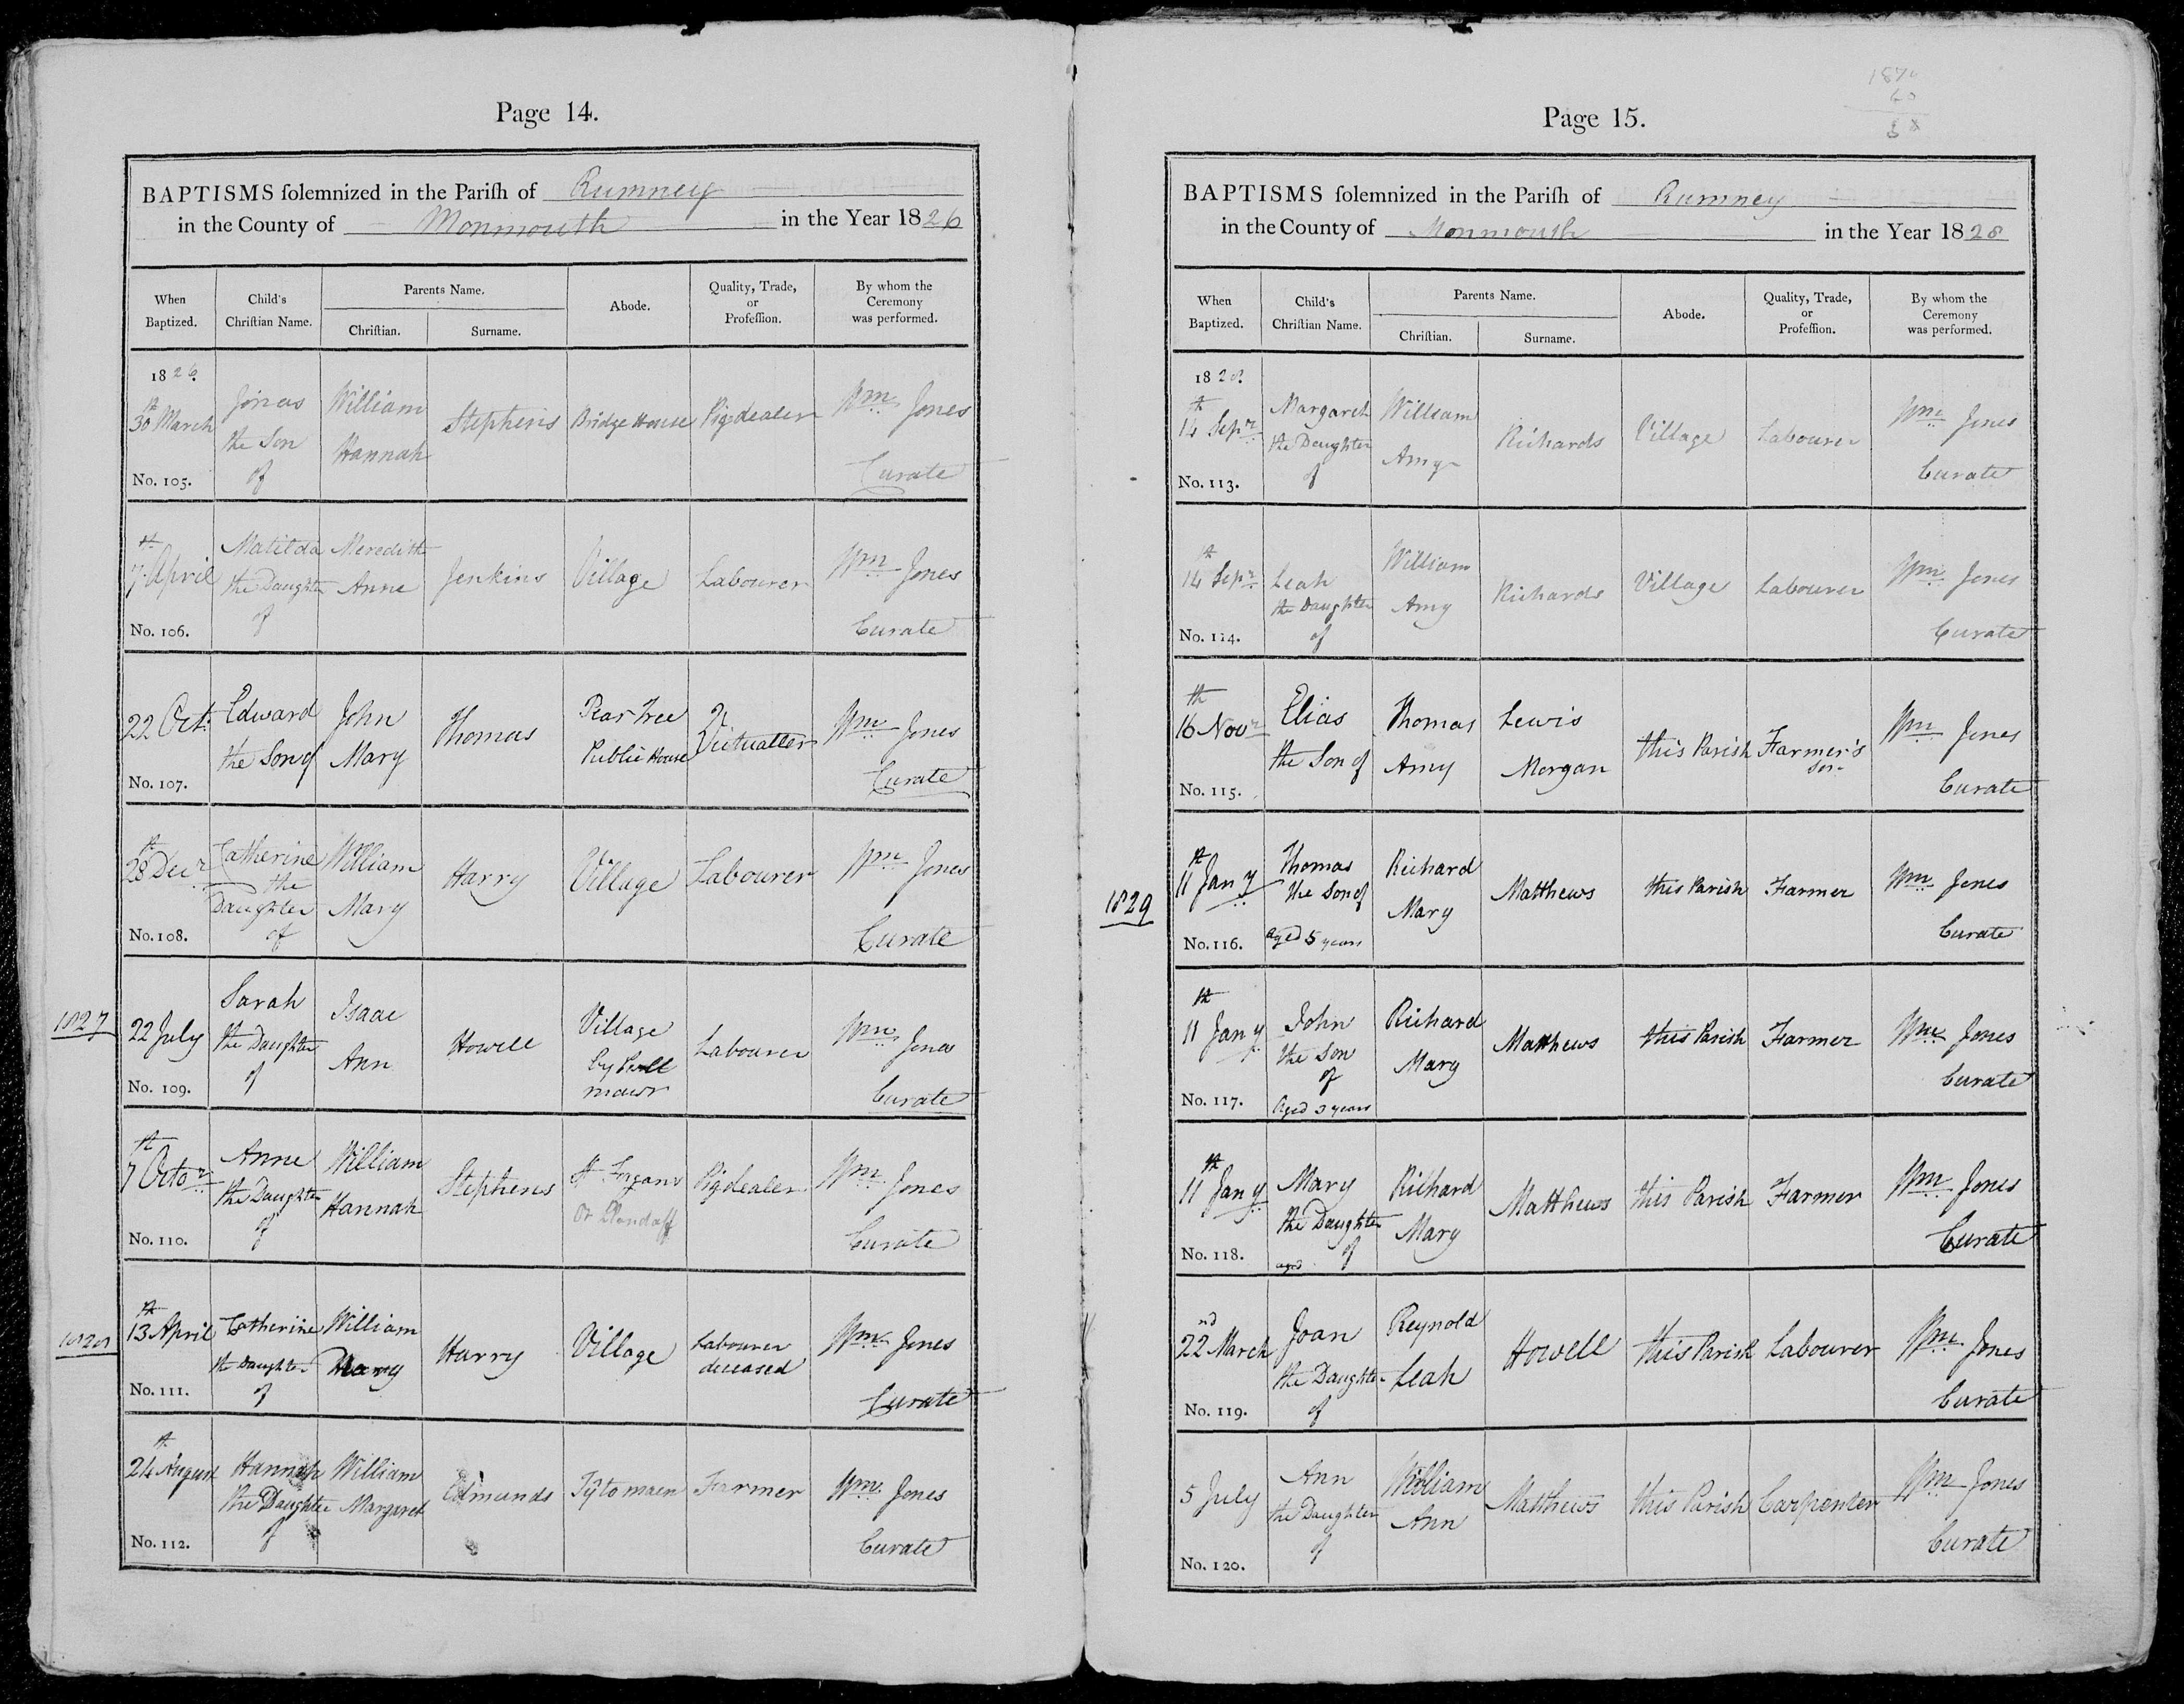 Page 14.
BAPTISMS solemnized in the Parish of Rumney
in the County of Monmouth in the Year 1826
When Baptized.
Child's Christian Name.
Parents Name.
Christian.
Surname.
Abode.
Quality, Trade, or Profession.
By whom the Ceremony was performed.
1826.
30th March
No. 105.
Jonas the Son of
William Hannah
Stephens
Bridge House
Pigdealer
Wm Jones Curate
7th April
No. 106.
Matilda the Daughter of
Meredith Anne
Jenkins
Village
Labourer
Wm Jones Curate
22 Oct.
No. 107.
Edward the Son of
John Mary
Thomas
Pear Tree Public House
Victualler
Wm Jones Curate
28th Decr
No. 108.
Catherine the Daughter of
William Mary
Harry
Village
Labourer
Wm Jones Curate
1827
22 July
No. 109.
Sarah the Daughter of
Isaac Ann
Howell
Village
mawr
Labourer
Wm Jones Curate
7th Octor
No. 110.
Anne the Daughter of
William Hannah
Stephens
St Fagans
Or Llandaff
Pigdealer
Wm Jones Curate
1828
13th April
No. 111.
Catherine the Daughter of
William Mary
Harry
Village
Labourer deceased
Wm Jones Curate
24th August
No. 112.
Hannah the Daughter of
William Margaret
Edmunds
Tytomaen
Farmer
Wm Jones Curate
Page 15.
BAPTISMS solemnized in the Parish of Rumney
in the County of Monmouth in the Year 1828
When Baptized.
Child's Christian Name.
Parents Name.
Christian.
Surname.
Abode.
Quality, Trade, or Profession.
By whom the Ceremony was performed.
1828.
14th Sepr
No. 113.
Margaret the Daughter of
William Amy
Richards
Village
Labourer
Wm Jones Curate
14th Sepr
No. 114.
Leah the Daughter of
William Amy
Richards
Village
Labourer
Wm Jones Curate
16th Novr
No. 115.
Elias the Son of
Thomas Amy
Lewis Morgan
this Parish
Farmer's Son
Wm Jones Curate
1829
11th Jany
No. 116.
Thomas the Son of
Aged 5 years
Richard Mary
Matthews
this Parish
Farmer
Wm Jones Curate
11th Jany
No. 117.
John the Son of
Aged 3 years
Richard Mary
Matthews
this Parish
Farmer
Wm Jones Curate
11th Jany
No. 118.
Mary the Daughter of
aged
Richard Mary
Matthews
this Parish
Farmer
Wm Jones Curate
22nd March
No. 119.
Joan the Daughter of
Reynold Leah
Howell
this Parish
Labourer
Wm Jones Curate
5 July
No. 120.
Ann the Daughter of
William Ann
Matthews
this Parish
Carpenter
Wm Jones Curate